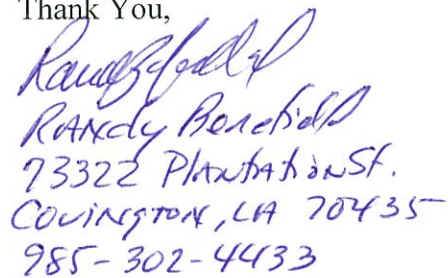 Thank You,
Randy Benefield
73322 Plantation St.
Covington, LA 70435
985-302-4433